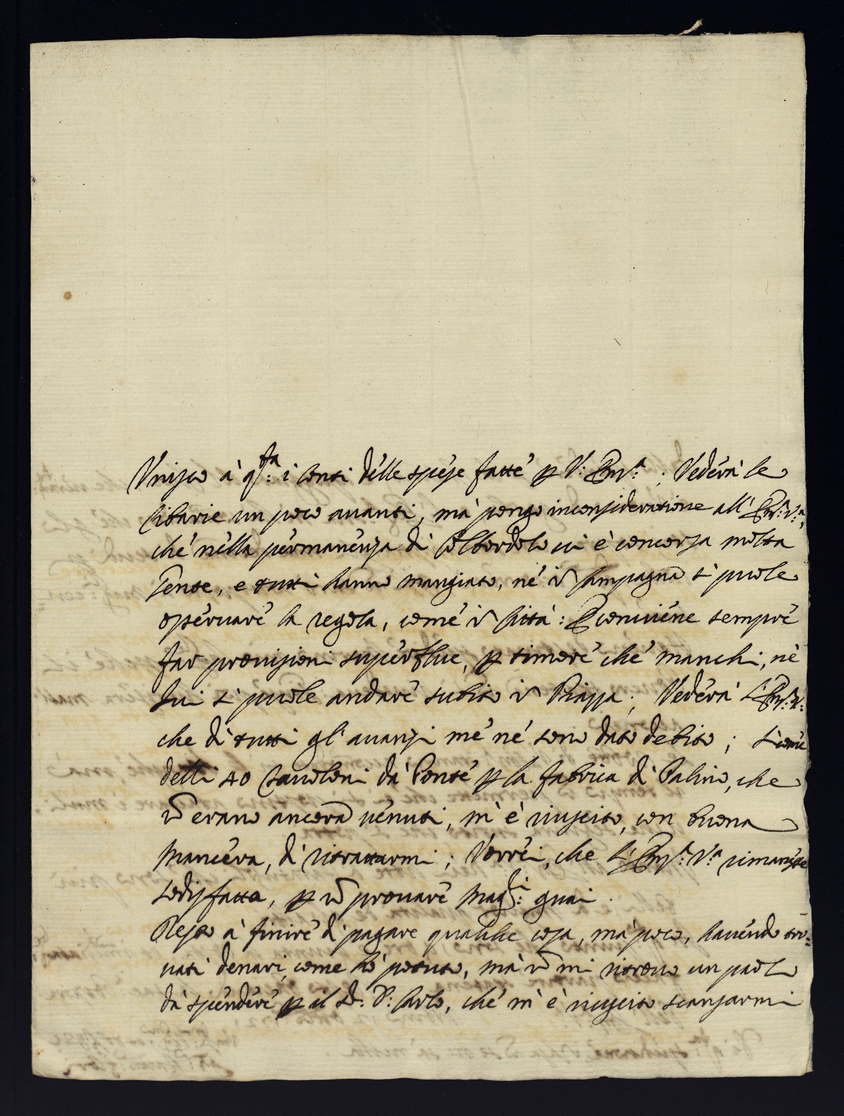 Unisco à q.sta i Conti delle spese fatte p V. Em.a; Vederà le
Cibarie un poco avanti, mà pongo in consideratione all' Em.a V.a,
che nella permanenza di Colbordolo vi è concorsa molta
Gente, e tutti hanno mangiato, nè in Campagna si puole
osservare la regola, come in Città: E conviene sempre
far provisioni superflue, p timore che manchi, nè
Lui si puole andare subito in Piazza; Vederà l'Em.a V.a
che di tutti gl' avanzi me ne sono dato debito; Si come
delli 40 Tavoloni da Ponte p la fabrica di Palino, che
non erano ancora venuti, m' è riuscito, con buona
Maniera, di ritrattarmi; Vorrei, che l'Em.a V.a rimanesse
sodisfatta, p non provare Mag.ri guai.
Resto à finire di pagare qualche cosa, mà poco, havendo tro=
vati denari, come hò potuto, mà non mi ritrovo un paolo
da spendere p il S.r D. Carlo, che m' è riuscito scansarmi